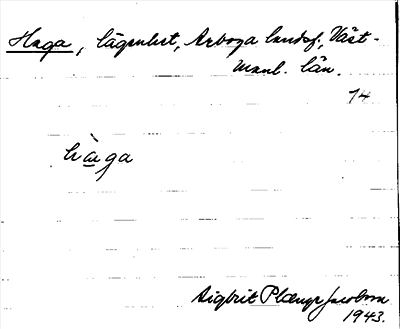 Haga, lägenhet, Arboga landsf., Väst-
manl. län.
74
hàga
Sigbrit Plænge Jacobson
1943.